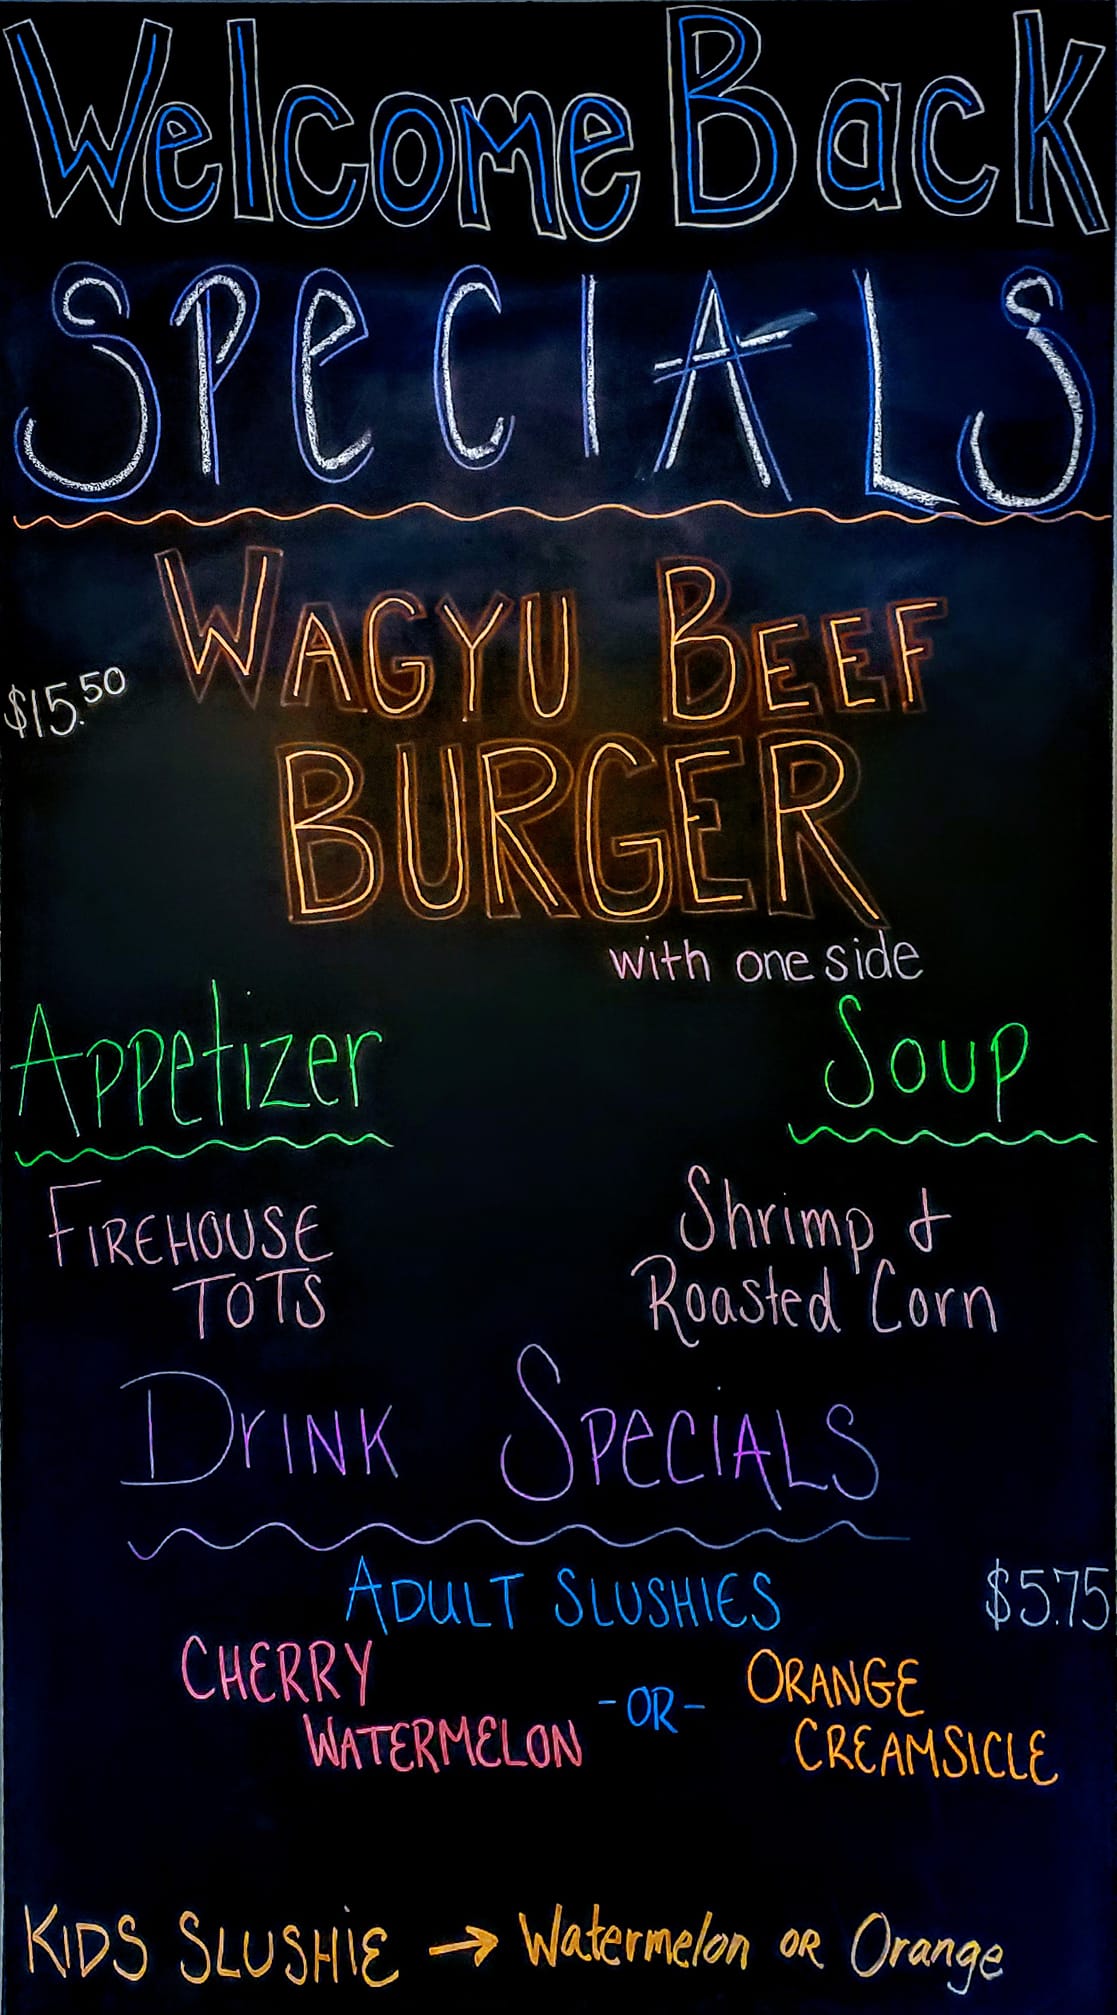 Welcome Back
SPeCIALS
WAGYU BEEF
$15.50
BURGER
with one side
Appetizer
Soup
FIREHOUSE
TOTS
Shrimp &
Roasted Corn
DrINK SPeCIALS
ADULT SLUSHIES
$5.75
CHERRY
WATERMELON
-OR-
ORANGE
CREAMSICLE
KIDS SLUSHiE → Watermelon OR Orange